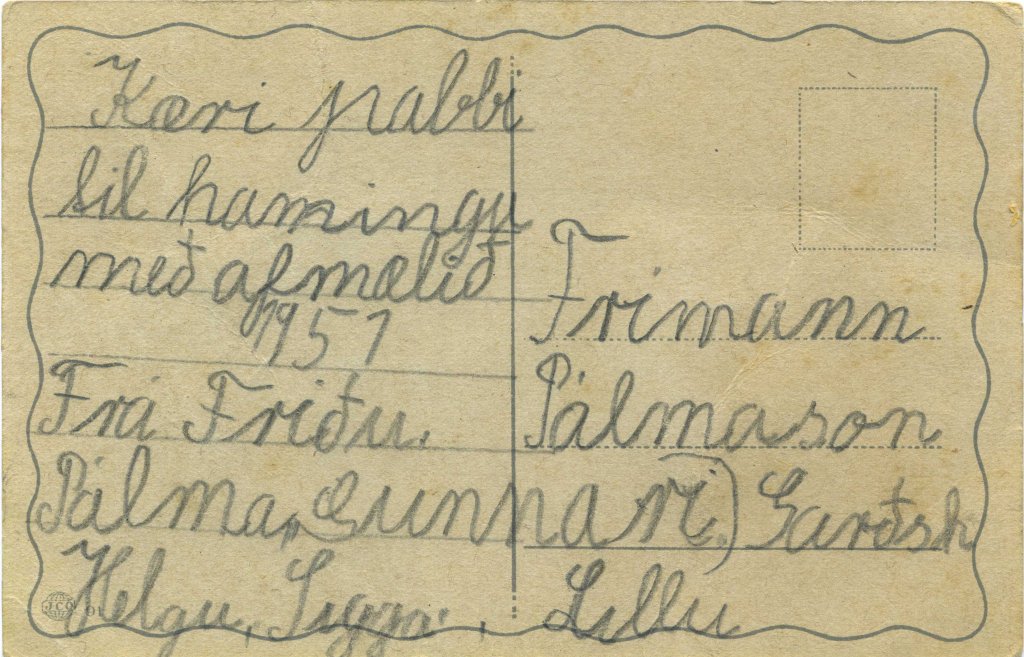 Kæri pabbi
til hamingu
með afmælið
1951
Frá Fríðu.
Pálma, Gunnari.)
Helgu, Sigga, Lillu
Frimann
Pálmason
Garðsh
JCO